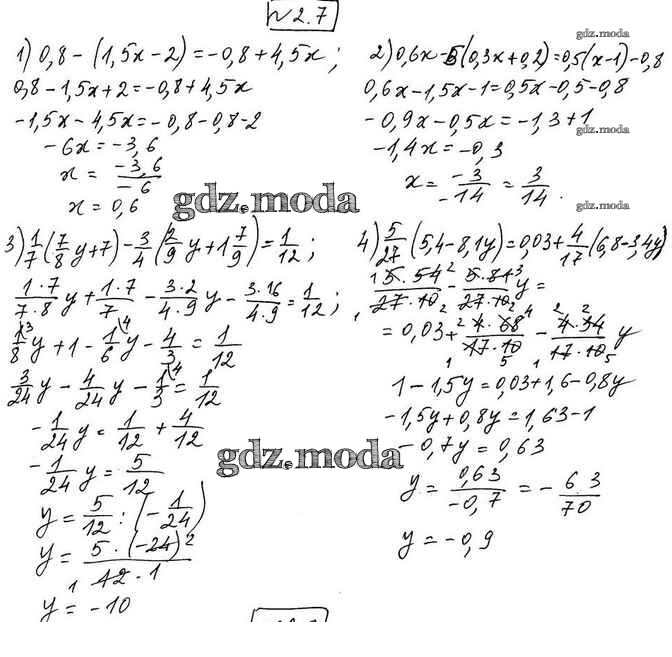 № 2.7
1) 0,8 - (1,5x - 2) = -0,8 + 4,5x ;
0,8 - 1,5x + 2 = -0,8 + 4,5x
-1,5x - 4,5x = -0,8 - 0,8 - 2
-6x = -3,6
x = -3,6/-6
x = 0,6
gdz.moda
2) 0,6x - 5(0,3x + 0,2) = 0,5(x - 1) - 0,8
gdz.moda
0,6x - 1,5x - 1 = 0,5x - 0,5 - 0,8
-0,9x - 0,5x = -1,3 + 1
gdz.moda
-1,4x = -0,3
x = -3/-14 = 3/14 .
gdz.moda
3) 1/7 (7/8 y + 7) - 3/4 (2/9 y + 1 7/9) = 1/12 ;
1·7/7·8 y + 1·7/7 - 3·2/4·9 y - 3·16/4·9 = 1/12 ;
1/8 y + 1 - 1/6 y - 4/3 = 1/12
3/24 y - 4/24 y - 1/3 = 1/12
-1/24 y = 1/12 + 4/12
-1/24 y = 5/12
y = 5/12 : (-1/24)
y = 5·(-24)/12·1
y = -10
gdz.moda
4) 5/27 (5,4 - 8,1y) = 0,03 + 4/17 (6,8 - 3,4y)
5·54/27·10 - 5·81/27·10 y =
= 0,03 + 4·68/17·10 - 4·34/17·10 y
1 - 1,5y = 0,03 + 1,6 - 0,8y
-1,5y + 0,8y = 1,63 - 1
-0,7y = 0,63
y = 0,63/-0,7 = -63/70
y = -0,9